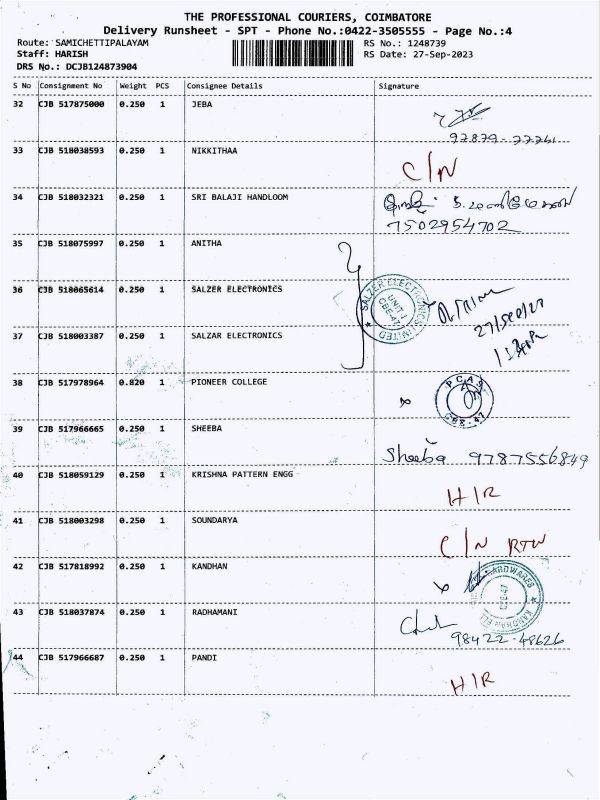 THE PROFESSIONAL COURIERS, COIMBATORE
Delivery Runsheet - SPT - Phone No.:0422-3505555 - Page No.:4
Route: SAMICHETTIPALAYAM RS No.: 1248739
Staff: HARISH RS Date: 27-Sep-2023
DRS No.: DCJB124873904
S No Consignment No Weight PCS Consignee Details Signature
32 CJB 517875000 0.250 1 JEBA
33 CJB 518038593 0.250 1 NIKKITHAA C/N
34 CJB 518032321 0.250 1 SRI BALAJI HANDLOOM
7502954702
35 CJB 518075997 0.250 1 ANITHA
36 CJB 518065614 0.250 1 SALZER ELECTRONICS
SALZER ELECTRONICS LIMITED
UNIT 1
CBE-47
37 CJB 518003387 0.250 1 SALZAR ELECTRONICS
38 CJB 517978964 0.820 1 PIONEER COLLEGE
PCAS
CBE-47
39 CJB 517966665 0.250 1 SHEEBA
Sheeba 9787556849
40 CJB 518059129 0.250 1 KRISHNA PATTERN ENGG
H/R
41 CJB 518003298 0.250 1 SOUNDARYA
C/N RTW
42 CJB 517818992 0.250 1 KANDHAN
43 CJB 518037874 0.250 1 RADHAMANI
98422-48626
44 CJB 517966687 0.250 1 PANDI
H/R